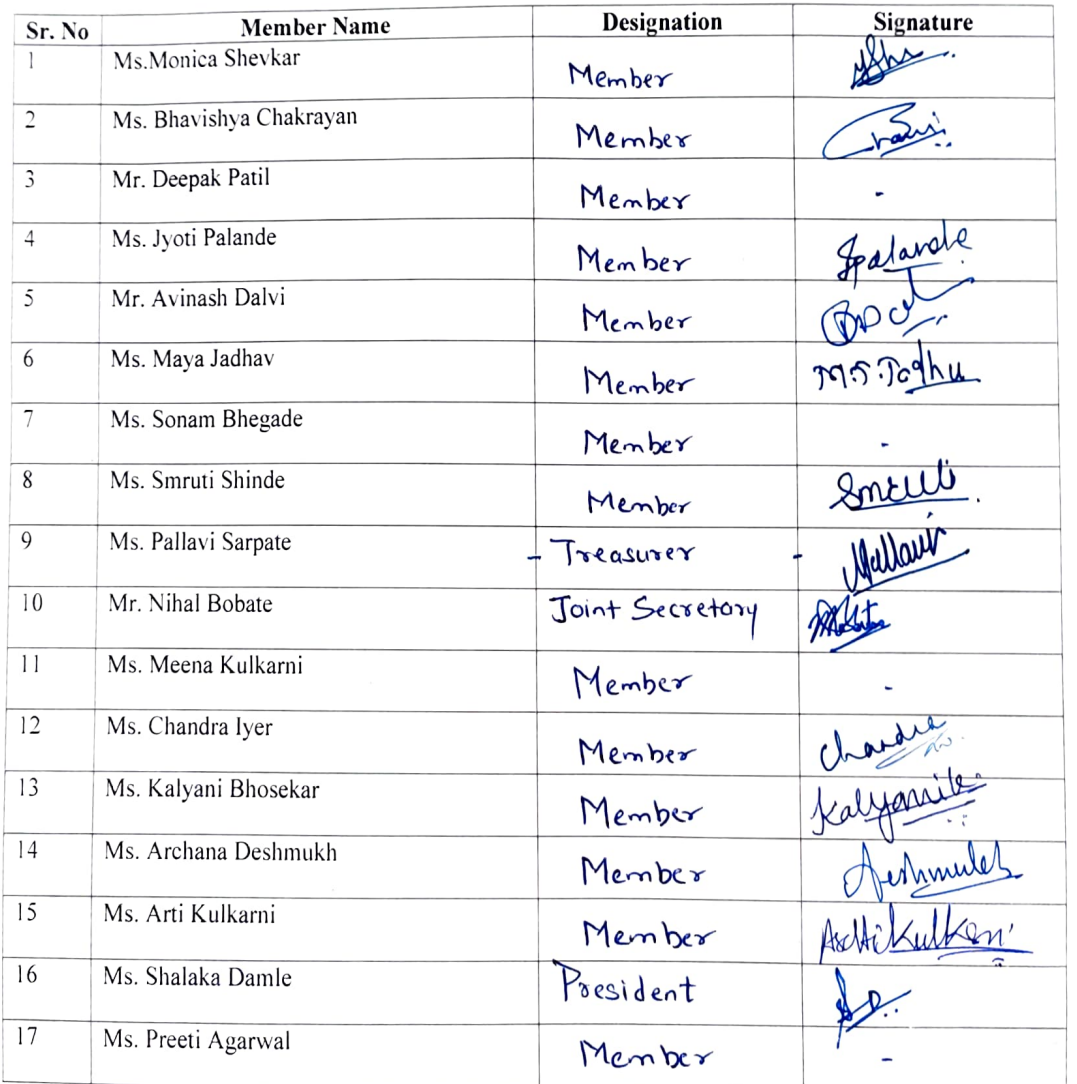 Sr. No Member Name Designation Signature
1 Ms.Monica Shevkar Member
2 Ms. Bhavishya Chakrayan Member
3 Mr. Deepak Patil Member -
4 Ms. Jyoti Palande Member Jpalande
5 Mr. Avinash Dalvi Member
6 Ms. Maya Jadhav Member
7 Ms. Sonam Bhegade Member -
8 Ms. Smruti Shinde Member Smruti
9 Ms. Pallavi Sarpate - Treasurer -
10 Mr. Nihal Bobate Joint Secretary
11 Ms. Meena Kulkarni Member -
12 Ms. Chandra Iyer Member Chandra
13 Ms. Kalyani Bhosekar Member
14 Ms. Archana Deshmukh Member
15 Ms. Arti Kulkarni Member
16 Ms. Shalaka Damle President
17 Ms. Preeti Agarwal Member -